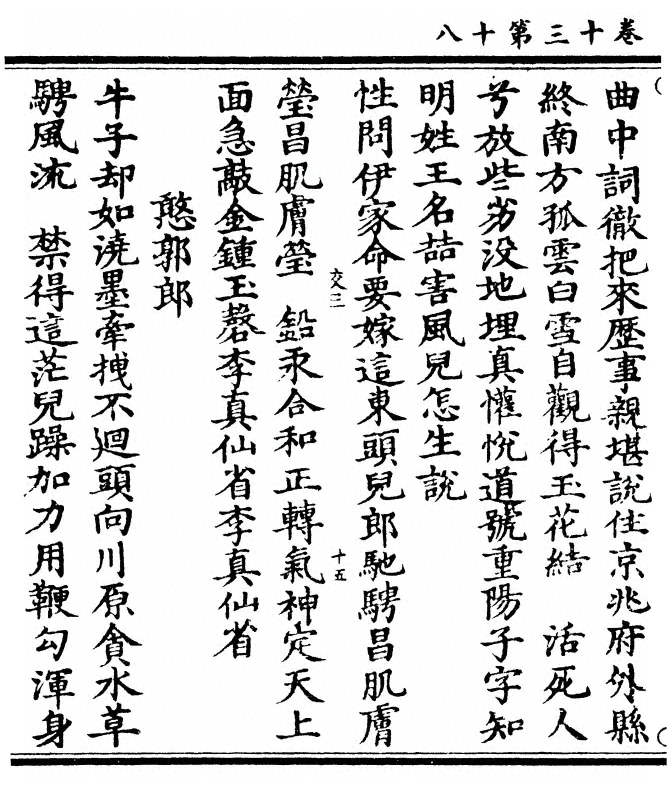 卷十三第十八
曲中詞徹把來歷事親堪說住京兆府外縣
終南方孤雲白雪自觀得玉花結　活死人
兮放些劣没地埋真懽悅道號重陽子字知
明姓王名喆害風兒怎生說
性問伊家命要嫁這東頭兒郎馳騁昌肌膚
交三
瑩昌肌膚瑩　鈆汞合和正轉氣神定天上
十五
面急敲金鍾玉磬李真仙省李真仙省
憨郭郎
牛子却如澆墨牽拽不迴頭向川原貪水草
騁風流　禁得這茫兒躁加力用鞭勾渾身